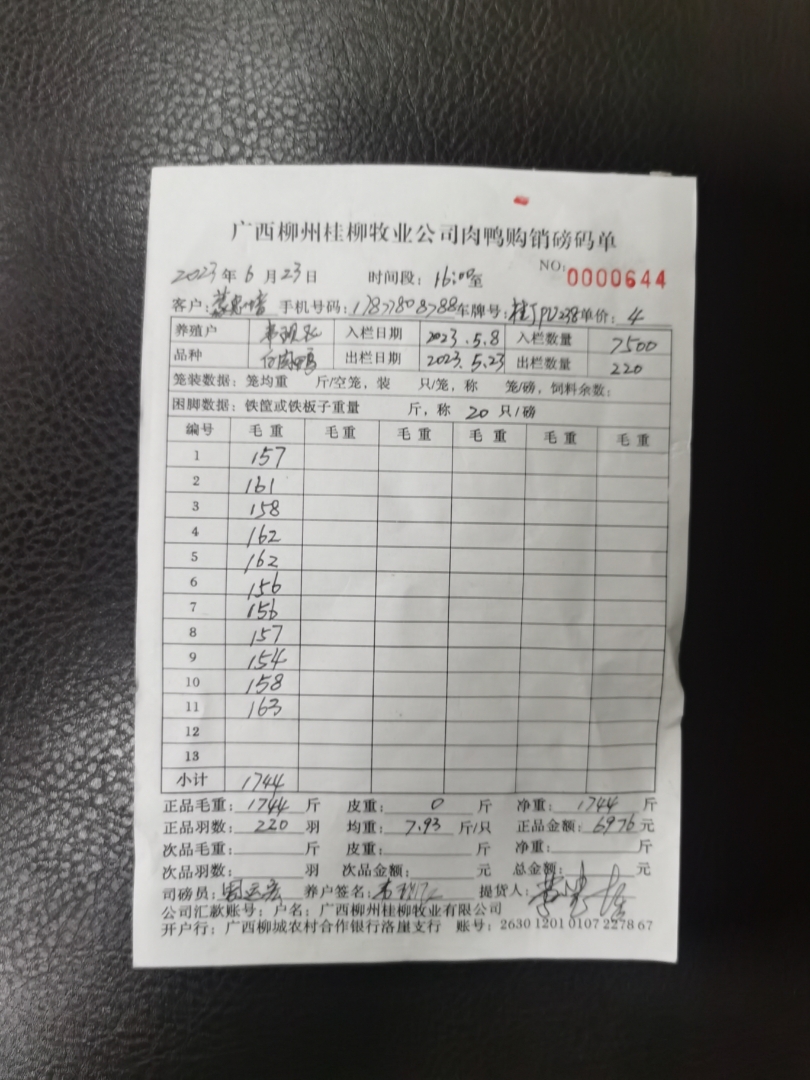 广西柳州桂柳牧业公司肉鸭购销磅码单
2023年6月23日 时间段：16:00至 NO：0000644
客户： 手机号码：17877808788 车牌号：桂 PU238 单价：4
养殖户 入栏日期 2023.5.8 入栏数量 7500
品种 白肉鸭 出栏日期 2023.5.23 出栏数量 220
笼装数据：笼均重 斤/空笼，装 只/笼，称 笼/磅，饲料余数：
困脚数据：铁筐或铁板子重量 斤，称 20 只/磅
编号 毛重 毛重 毛重 毛重 毛重 毛重
1 157
2 161
3 158
4 162
5 162
6 156
7 156
8 157
9 154
10 158
11 163
12
13
小计 1744
正品毛重：1744斤 皮重：0斤 净重：1744斤
正品羽数：220羽 均重：7.93斤/只 正品金额：6976元
次品毛重：斤 皮重：斤 净重：斤
次品羽数：羽 次品金额：元 总金额：元
司磅员：周运宏 养户签名： 提货人：
公司汇款账号：户名：广西柳州桂柳牧业有限公司
开户行：广西柳城农村合作银行洛崖支行 账号：2630 1201 0107 2278 67